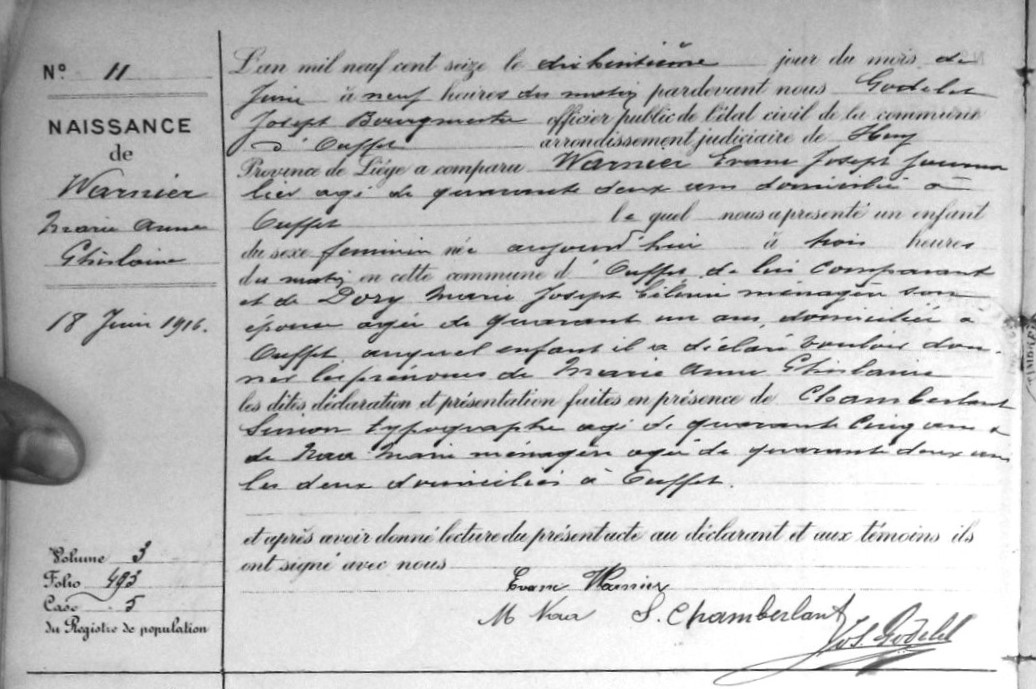 N° 11
NAISSANCE
de
Warnier
Marie Anne
Ghislaine
18 Juin 1916.
Volume 3
Folio 493
Case 5
du Registre de population
L'an mil neuf cent seize le dixhuitième jour du mois de
Juin à neuf heures du matin pardevant nous Godelet
Joseph Bourgmestre officier public de l'état civil de la commune
d'Ouffet arrondissement judiciaire de Huy
Province de Liége a comparu Warnier Evam Joseph journa
lier agé de quarante deux ans domicilié à
Ouffet lequel nous a présenté un enfant
du sexe feminin née aujourd'hui à trois heures
du matin en cette commune d'Ouffet, de lui comparant
et de Dory Marie Joseph ménagère son
épouse agée de quarant un ans, domiciliée à
Ouffet, auquel enfant il a déclaré vouloir don-
ner les prénoms de Marie Anne Ghislaine
les dites déclaration et présentation faites en présence de Chamberlant
Simon typographe agé de quarante cinq ans &
de Naa Marie ménagère agée de quarante deux ans
les deux domiciliés à Ouffet.
et après avoir donné lecture du présent acte au déclarant et aux témoins ils
ont signé avec nous
Evam Warnier
M Naa S. Chamberlant
Jos Godelet